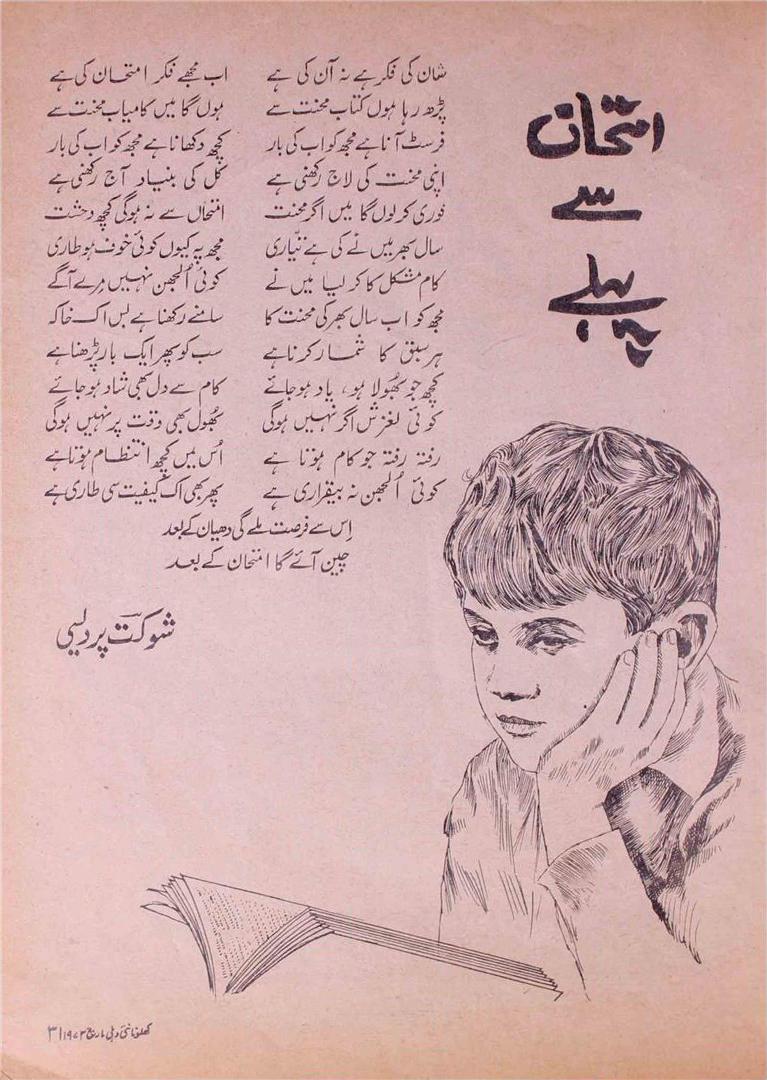 امتحان
سے
پہلے
شان کی فکر ہے نہ آن کی ہے اب مجھے فکر امتحان کی ہے
پڑھ رہا ہوں کتاب محنت سے ہوں گا میں کامیاب محنت سے
فرسٹ آنا ہے مجھ کو اب کی بار کچھ دکھانا ہے مجھ کو اب کی بار
اپنی محنت کی لاج رکھنی ہے کل کی بنیاد آج رکھنی ہے
فوری کر لوں گا میں اگر محنت امتحاں سے نہ ہوگی کچھ دحشت
سال بھر میں نے کی ہے تیّاری مجھ پہ کیوں کوئی خوف ہو طاری
کام مشکل کا کر لیا میں نے کوئی اُلجھن نہیں مِرے آگے
مجھ کو اب سال بھر کی محنت کا سامنے رکھنا ہے بس اک خاکہ
ہر سبق کا شمار کرنا ہے سب کو پھر ایک بار پڑھنا ہے
کچھ جو بھُولا ہو، یاد ہو جائے کام سے دل بھی شاد ہو جائے
کوئی لغزش اگر نہیں ہوگی بھُول بھی وقت پر نہیں ہوگی
رفتہ رفتہ جو کام ہوتا ہے اُس میں کچھ انتظام ہوتا ہے
کوئی اُلجھن نہ بیقراری ہے پھر بھی اک کیفیت سی طاری ہے
اِس سے فرصت ملے گی دھیان کے بعد
چین آئے گا امتحان کے بعد
شوکت پردیسی
کھلونا نئی دہلی مارچ ۱۹۷۳ | ۳۱